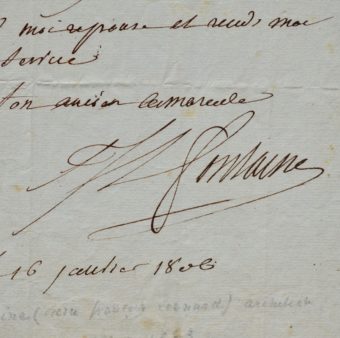 moi reponse et rends moi
service
ton ancien camarade
Fontaine
16 janvier 1806
(pierre françois leonard) architecte